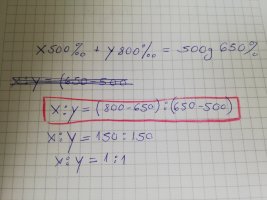 x500‰ + y800‰ = 500g 650‰
x:y = (650-500
x:y = (800-650):(650-500)
x:y = 150:150
x:y = 1:1